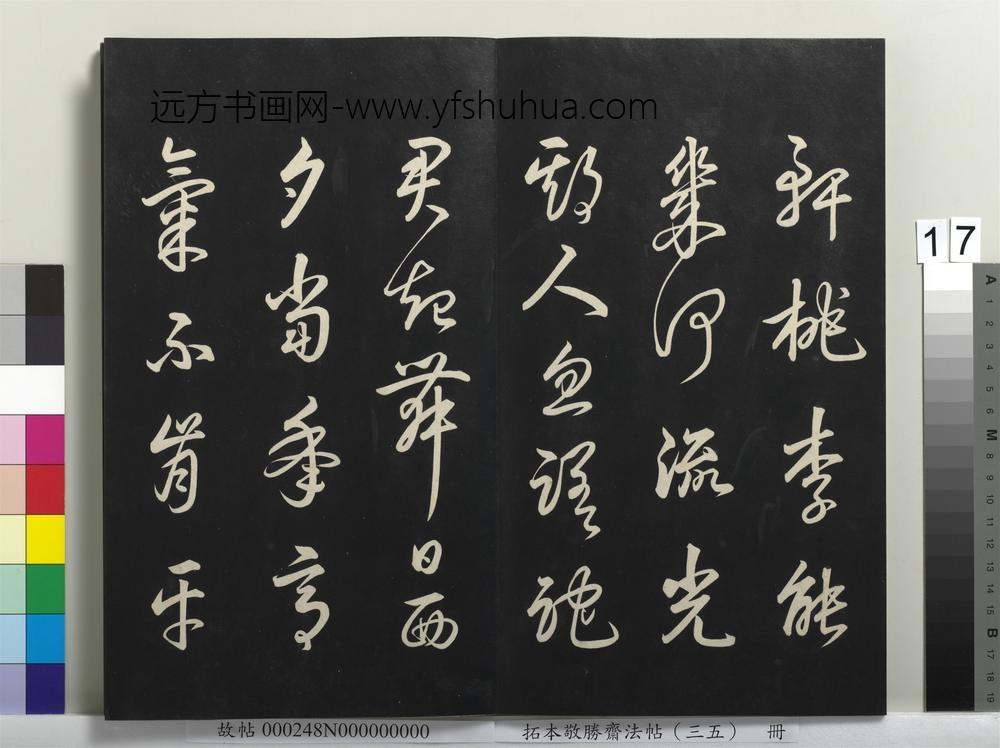 远方书画网-www.yfshuhua.com
軒桃李能
幾何流光
欺人忽蹉跎
君起舞日西
夕當年意
氣不肯平
17
A 1 2 3 4 5 6 M 8 9 10 11 12 13 14 15 B 17 18 19
故帖 000248N000000000
拓本敬勝齋法帖（三五） 冊